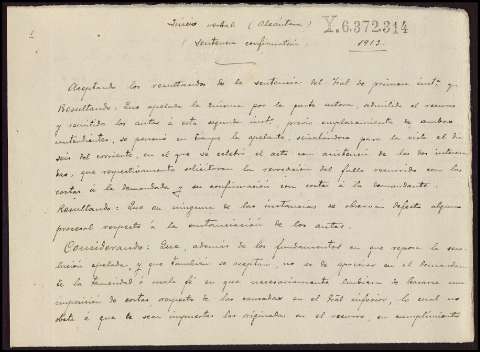 Juicio verbal (Alcántara)
Y.6.372.314
(Sentencia confirmatoria)
1913
Aceptando los resultandos de la sentencia del Tral de primera insta y
Resultando: Que apelada la misma por la parte actora, admitido el recurso
y remitidos los autos á esta segunda insta, previo emplazamiento de ambos
contendientes, se personó en tiempo la apelante, señalándose para la vista el dia
seis del corriente, en el que se celebró el acto con asistencia de los dos interesa-
dos, que respectivamente solicitaron la revocación del fallo recurrido con las
costas á la demandada y su confirmación con costas á la demandante.
Resultando: Que en ninguna de las instancias se observa defecto alguno
procesal respecto á la sustanciación de los autos.
Considerando: Que, además de los fundamentos en que reposa la reso-
lución apelada y que también se aceptan, no es de apreciar en el demandan-
te la temeridad ó mala fé en que necesariamente hubiera de basarse una
imposición de costas respecto de las causadas en el Tral inferior, lo cual no
obsta á que le sean impuestas las originadas en el recurso, en cumplimiento